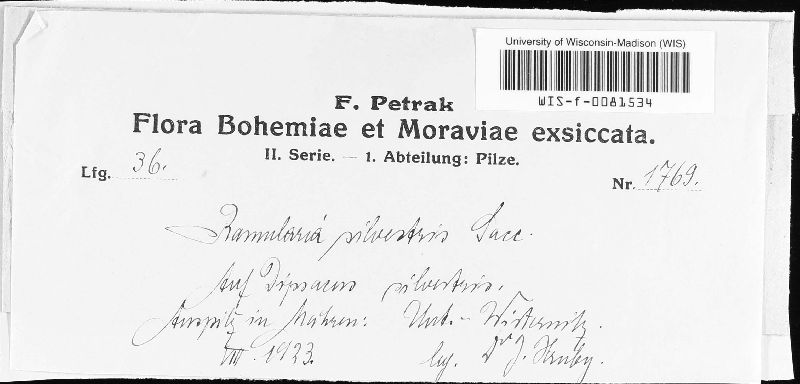 University of Wisconsin-Madison (WIS)
WIS-f-0081534
F. Petrak
Flora Bohemiae et Moraviae exsiccata.
II. Serie. — 1. Abteilung: Pilze.
Lfg. 36.
Nr. 1769.
Ramularia silvestris Sacc.
Auf Dipsacus silvestris.
Auspitz in Mähren: Unt.-Wisternitz.
VIII. 1923. lg. Dr J. Hruby.